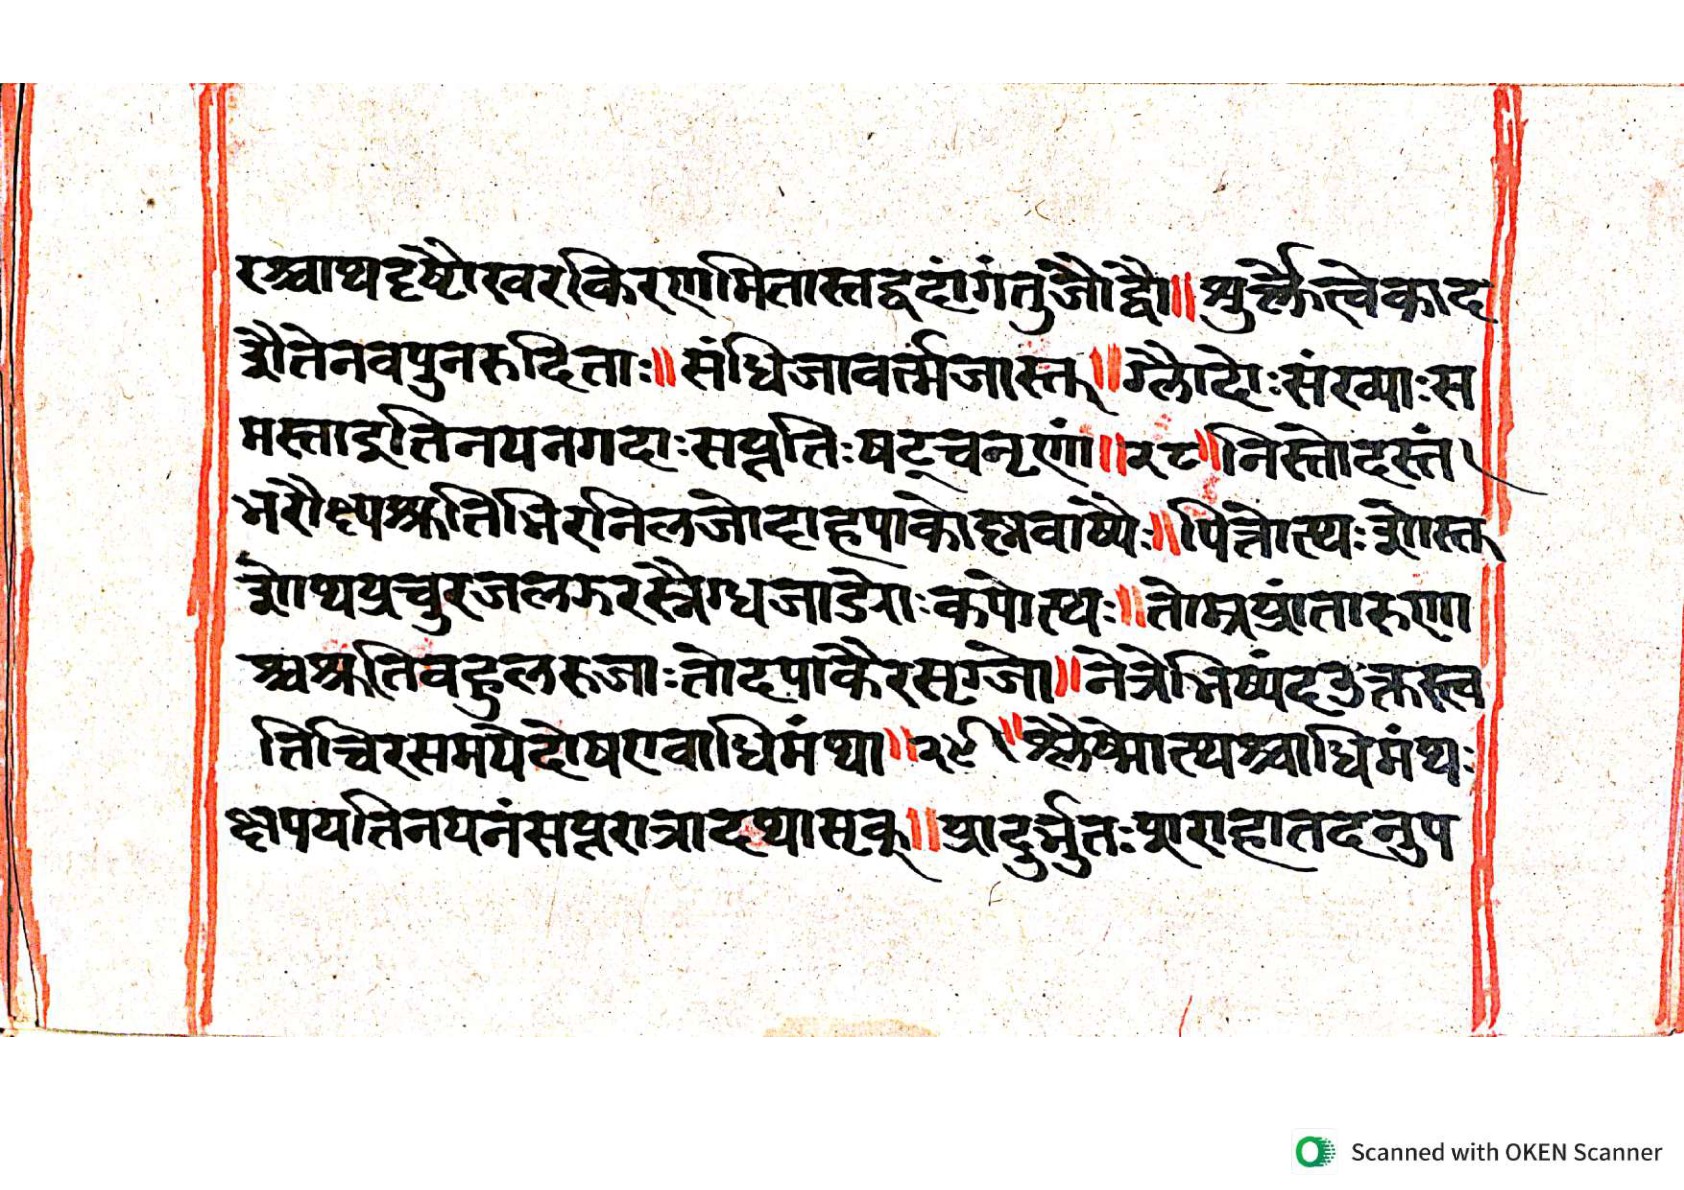 रश्वाथदृष्टौखरकिरणमितास्तद्वदांगंतुजौद्वौ॥शुर्क्लेत्वेकाद
शैतेनवपुनरुदिताः॥संधिजावर्त्मजास्तु॥ग्लौदोःसंख्याःस
मस्ताइतिनयनगदाःसप्ततिःषट्चनृणां॥२८॥निस्तोदस्तं
भरौक्ष्यश्रुतिभिरनिलजोदाहपाकोष्मवाष्पैः॥पित्तोत्थःशोस्तु
शोथप्रचुरजलगरस्नैग्धजाडेराःकफोत्थः॥तोम्रप्रांतारुणा
श्वश्रुतिवहुलरुजाःतोदपाकैरसृग्जो॥नेत्रेभिष्यंदउक्तस्त्व
तिचिरसमयेदोषएवाधिमंथा॥२९॥श्लैष्मोत्थश्वाधिमंथः
क्षपयतिनयनंसप्तरात्रादथासृक्॥प्रादुर्भुतःपूराहातदनुप
Scanned with OKEN Scanner